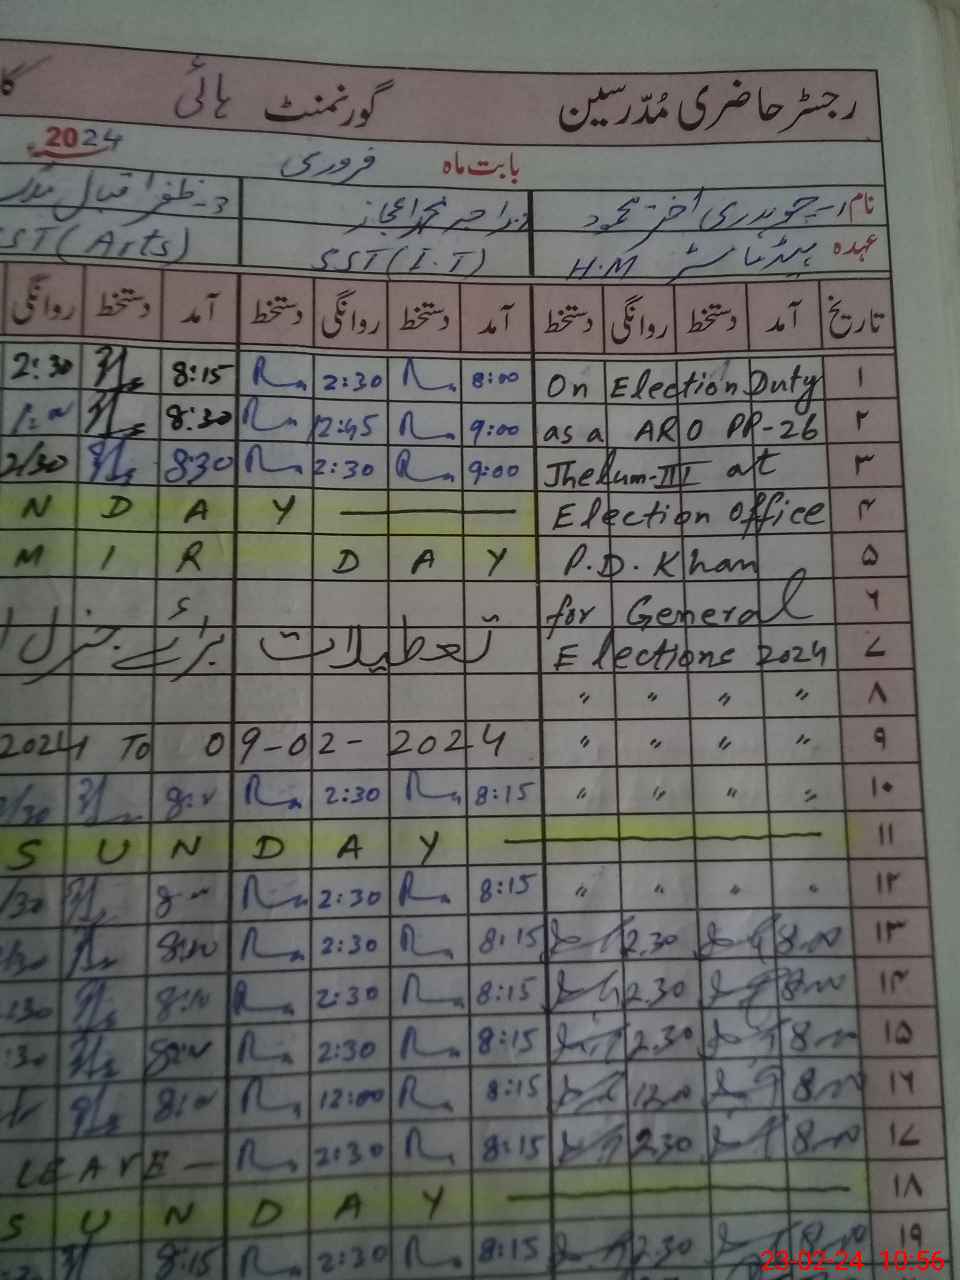 رجسٹر حاضری مُدّرسین گورنمنٹ ہائی
بابت ماہ فروری 2024
نام 1- چوہدری اختر محمود 2- راجہ 3- ظفر اقبال
عہدہ ہیڈ ماسٹر H.M SST (I.T) SST (Arts)
تاریخ آمد دستخط روانگی دستخط آمد دستخط روانگی دستخط آمد دستخط روانگی
۱ On Election Duty 8:00 2:30 8:15 2:30
۲ as a ARO PP-26 9:00 12:45 8:30
۳ Jhelum-III at 9:00 2:30 8:30 2/30
۴ Election office N D A Y
۵ P.D. Khan M I R D A Y
۶ for General
۷ Elections 2024 تعطیلات برائے جنرل
۸ " " " "
۹ " " " " 2024 To 09-02-2024
۱۰ " " " " 8:15 2:30 /30
۱۱ S U N D A Y
۱۲ " " " " 8:15 2:30 /30
۱۳ 8:00 2.30 8:15 2:30
۱۴ 8:00 2.30 8:15 2:30 :30
۱۵ 8:00 2.30 8:15 2:30 :30
۱۶ 8:00 12:00 8:15 12:00
۱۷ 8:00 2.30 8:15 2:30 LEAVE -
۱۸ S U N D A Y
۱۹ 8:00 2.30 8:15 2:30 8:15
23-02-24 10:56